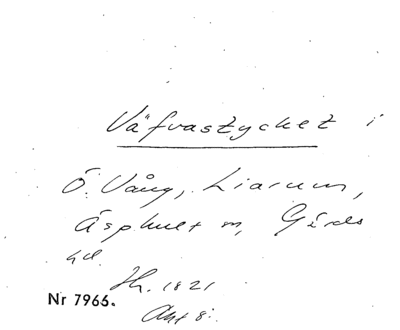 Väfvastycket i
Ö. Vång, Liarum,
Äsphult m, Gärds
hd.
Hr. 1821
Nr 7966.
Akt 8: